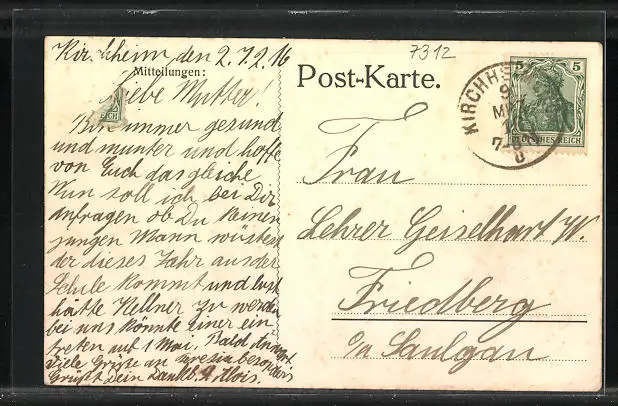 Kirchheim den 27.2.16
Mitteilungen:
Liebe Mutter!
Bin immer gesund
und munter und hoffe
von Euch das gleiche
Nun soll ich bei Dir
anfragen ob Du keinen
jungen Mann wüstest
der dieses Jahr aus der
Schule kommt und Lust
hätte Kellner zu werden
bei uns könnte einer ein
treten auf 1 Mai. Bald
Viele Grüße an Kresia besonders
Grüßt Dein dankb. Alois.
REICH
7312
Post-Karte.
5 5
KIRCHH
DEUTSCHES REICH
Frau
Lehrer Geiselhart W.
Friedberg
b/a Saulgau